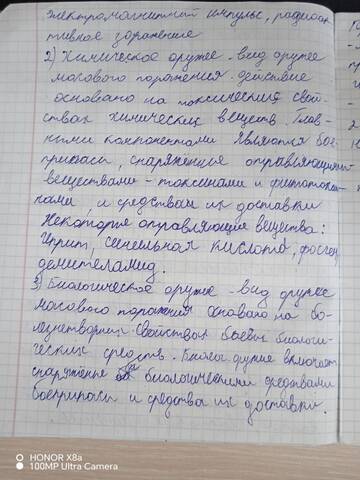 электромагнитный импульс, радиоак
тивное заражение
2) Химическое оружее - вид оружее
масового поражения. действие
основано на токсический свой-
ствах химических веществ. Глав-
ными компонентами являются бое-
припасы, снаряженые отравляющими
веществами - токсинами и фитотокси-
ками и средствам их доставки
Некоторые отравляющие вещества:
Иприт, синильная кислота, фосген,
3) Биологическое оружее - вид оружее
масового поражения основано на бо-
лезнетворных свойствах боевых биологи-
ческих средств. Биолог оружие включает
снаряженые биологическими средствами
боеприпасы и средства их доставки.
HONOR X8a
100MP Ultra Camera